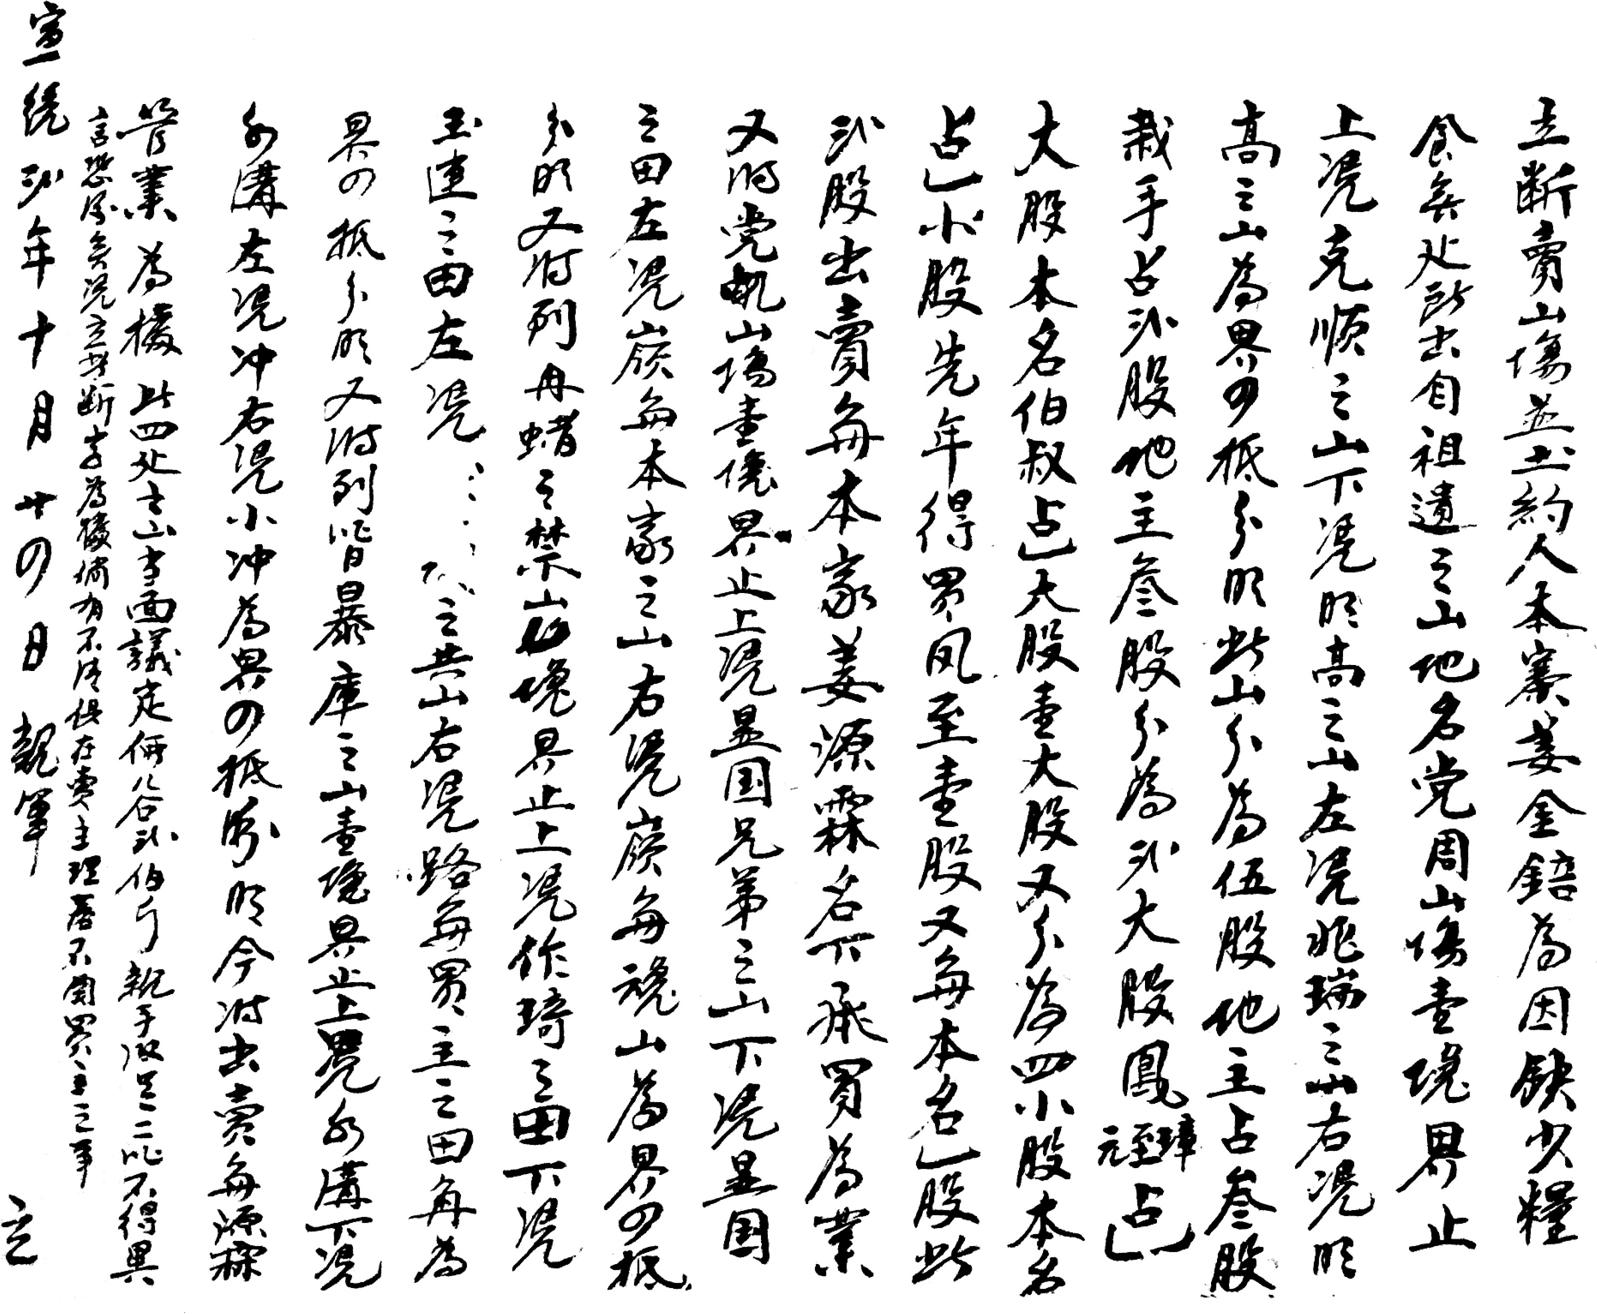 立断賣山塲並土約人本寨姜金錇為因缺少糧
食無处所出自祖遺之山地名党周山塲壹塊界止
上凭克順之山下凭明高之山左凭兆瑞之山右凭明
高之山為界四抵分明此山分為伍股地主占叁股
栽手占弍股地主叁股分為弍大股鳳至璋元占一
大股本名伯叔占一大股壹大股又分為四小股本名
占一小股先年得買凤至壹股又毎本名一股此
弍股出賣毎本家姜源霖名下承買為業
又將党 山塲壹塊界止上凭显国兄弟之山下凭显国
之田左凭嶺毎本家之山右凭嶺毎 山為界四抵
分明又將列冉蜡之禁山 塊界止上凭作琦之田下凭
玉連之田左凭 之共山右凭路毎買主之田角為
界四抵分明又將列 暴庫之山壹塊界止上凭水溝下凭
水溝左凭冲右凭小冲為界四抵分明今將出賣毎源霖
管業為據此四处之山当面議定價谷弍 親手收足二比不得異
言恐後無凭立此断字為據倘有不清俱在賣主理落不関買主之事
宣統弍年十月廿四日 親筆 立